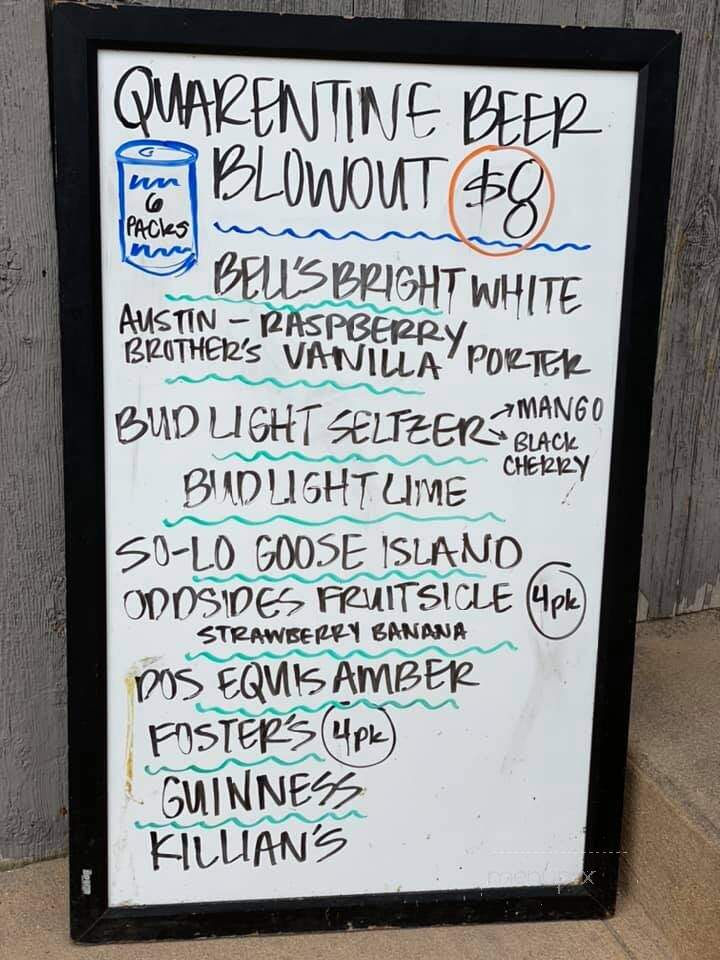 QUARENTINE BEER
BLOWOUT $8
6
PACKS
BELL'S BRIGHT WHITE
AUSTIN - RASPBERRY
BROTHER'S VANILLA PORTER
BUD LIGHT SELTZER → MANGO
→ BLACK
CHERRY
BUD LIGHT LIME
SO-LO GOOSE ISLAND
ODDSIDES FRUITSICLE 4pk
STRAWBERRY BANANA
DOS EQUIS AMBER
FOSTER'S 4pk
GUINNESS
KILLIAN'S
menupix